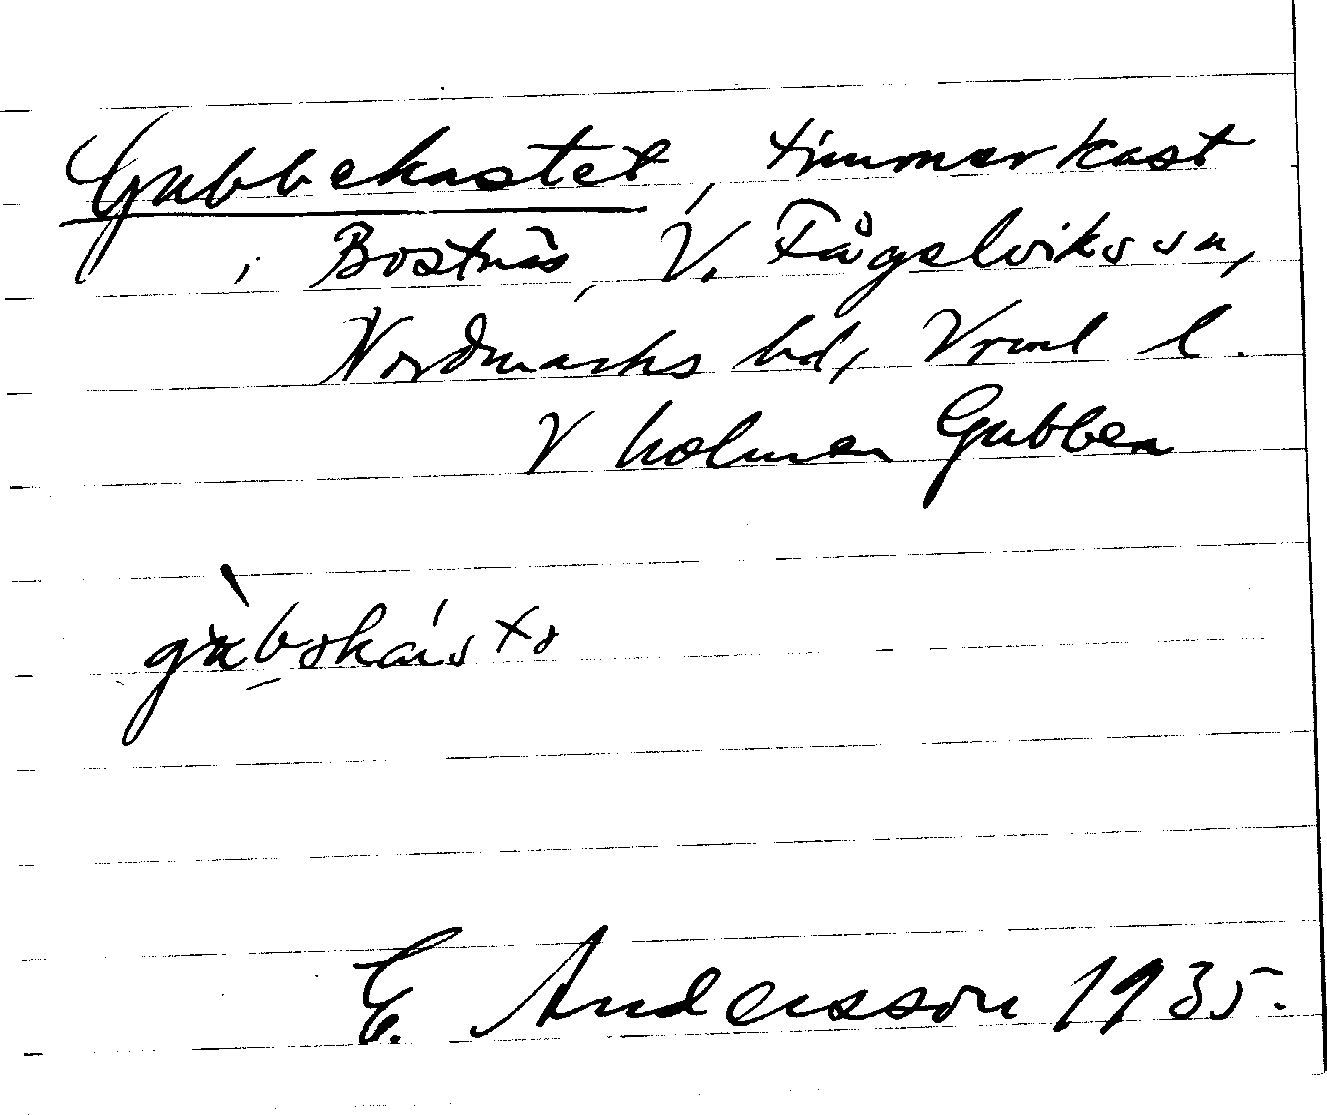 Gubbekastet, timmerkast
i Bostnäs, V. Fågelviks sn,
Nordmarks hd, Vrml l.
V holmen Gubben
E. Andersson 1935.